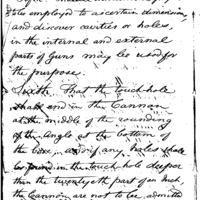 ates employed to ascertain dimensions
and discover cavities or holes,
in the internal and external
parts of Guns may be used for
the purpose.
Sixth That the touch hole
shall end in the Cannon
at the middle of the rounding
of the Angle at the bottom of
the bore and if any holes shall
be found in the touch hole deeper
than the twentyeth part of an Inch,
the Cannon are not to be admitted